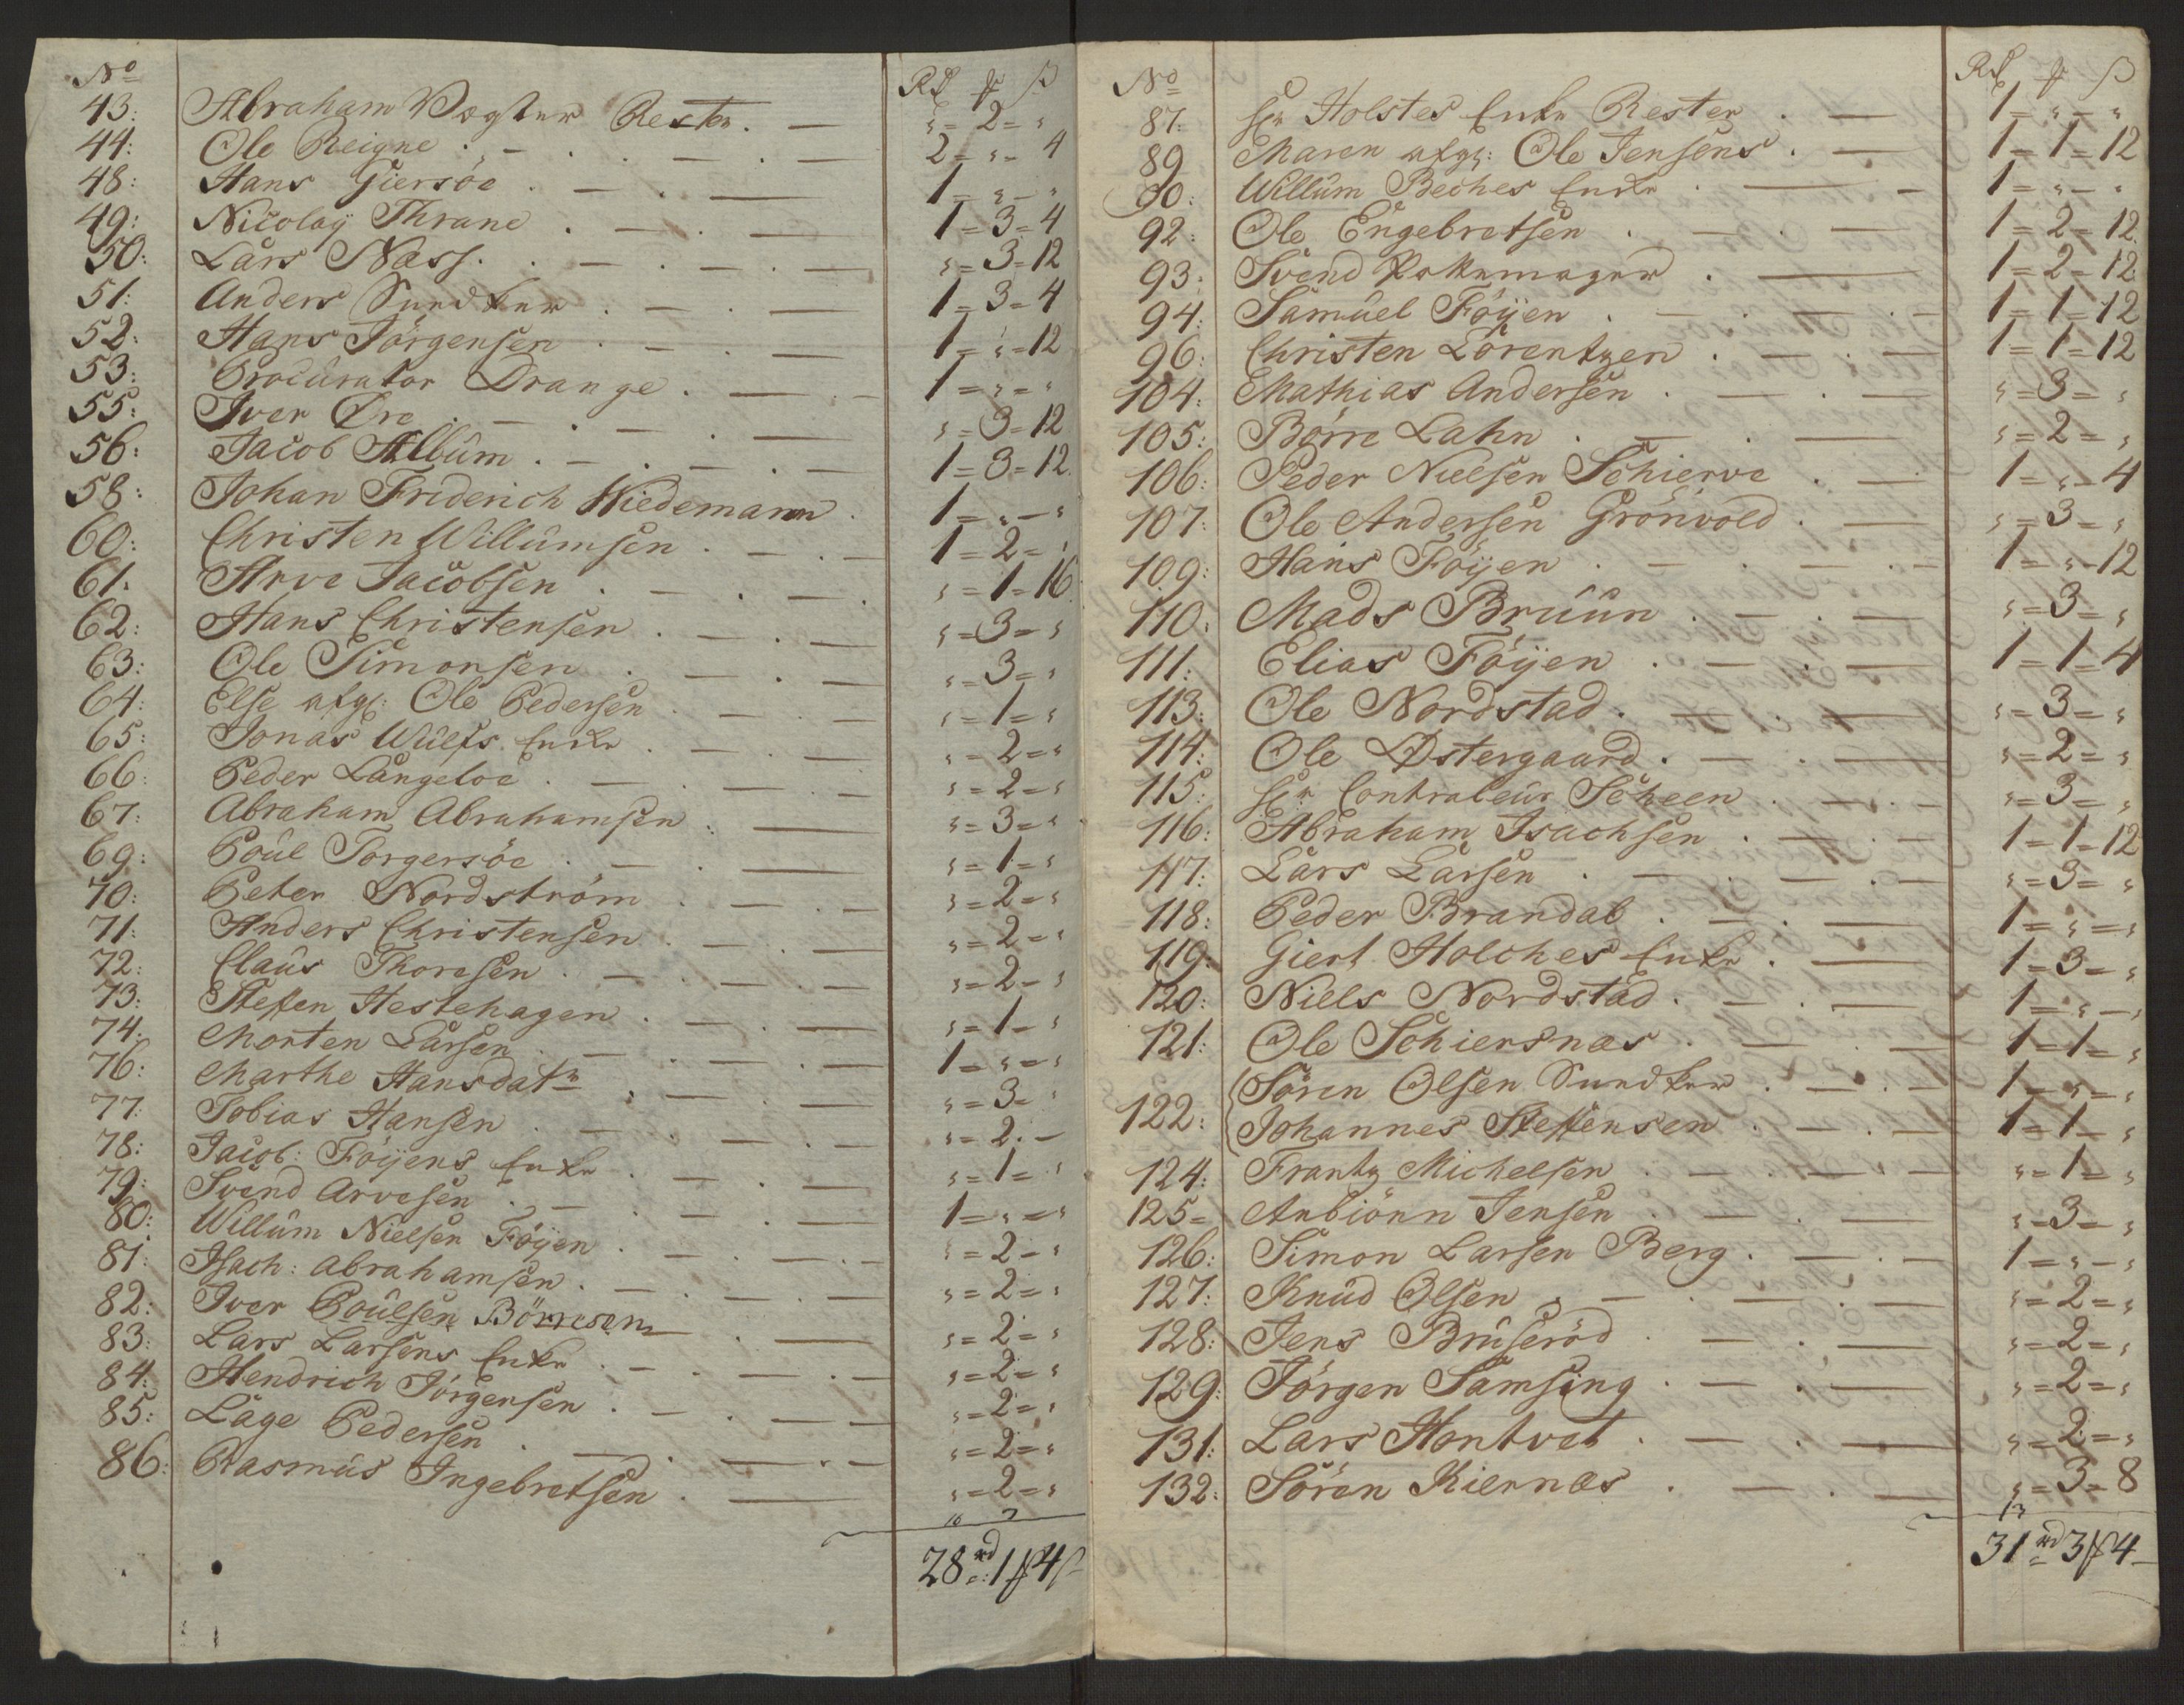 No Rd ₰ β
43: Abraham Vegter Rester. — „ = 2 = „
44: Ole Reigne . — . — . — 2 = „ = 4
48: Hans Giersöe . — . — 1 = „ = „
49: Nicolaÿ Thrane . — . — 1 = 3 = 4
50: Lars Næss . . — . — . — „ = 3 = 12
51: Anders Sundbÿe . — . — 1 = 3 = 4
52: Hans Jörgensen . — . — 1 = „ = 12
53: Procurator Drange . — . — 1 = „ = „
55: Iver Øre . — . — . — „ = 3 = 12
56: Jacob Album . — . — . — 1 = 3 = 12
58: Johan Friderich Wiedemann . 1 = „ = „
60: Christen Willumsen . — . — 1 = 2 = „
61: Arve Jacobsen . — . — . „ = 1 = 16
62: Hans Christensen . — . — „ = 3 = „
63: Ole Simonsen . — . — „ = 3 = „
64: Else afgl: Ole Pedersen . — — „ = 1 = „
65: Jonas Wulfs Enke . — . — „ = 2 = „
66: Peder Langeloe . — . — . — „ = 2 = „
67: Abraham Abrahamsen . — „ = 3 = „
69: Poul Torgersöe . — . — „ = 1 = „
70: Peter Nordström . — . — „ = 2 = „
71: Anders Christensen . — . — „ = 2 = „
72: Claus Thoresen . — . — . — „ = 2 = „
73: Steffen Hestehagen . — . — „ = 1 = „
74: Morten Larsen . — . — . — 1 = „ = „
76: Marthe Hansdatr . — . — „ = 3 = „
77: Tobias Hansen . — . — . — „ = 2 . —
78: Jacob: Föÿens Enke . — . — „ = 1 = „
79: Svend Arvesen . — . — . — 1 = „ = „
80: Willum Nielsen Föÿen . — . — „ = 2 = „
81: Isach: Abrahamsen . — . — . — „ = 2 = „
82: Iver Poulsen Börresen — . — „ = 2 = „
83: Lars Larsens Enke . — . — . — „ = 2 = „
84: Hendrich Jörgensen . — . — . — „ = 2 = „
85: Lage Pedersen . — . — . — „ = 2 = „
86: Rasmus Ingebretsen . — „ = 2 = „
28 rd: 1 ₰ 4 β
No Rd ₰ β
87: Hr Holstes Enke Rester . — 1 = „ = „
89 Maren afgl: Ole Jensens . — 1 = 1 = 12
90: Willum Beches Enke . — — 1 = „ = „
92: Ole Engebretsen . — . — 1 = 2 = 12
93: Svend Pottemager . — 1 = 2 = 12
94: Samuel Föÿen . — . — . — 1 = 1 = 12
96: Christen Lörentzen . — . — 1 = 1 = 12
104: Mathias Andersen . — . — „ = 3 = „
105: Börre Lahn . — . — „ = 2 = „
106: Peder Nielsen Schierve . — 1 = „ = 4
107: Ole Andersen Grönvold . — „ = 3 = „
109: Hans Föÿen . — . — . — 1 = „ = 12
110: Mads Bruun . — . — „ = 3 = „
111: Elias Föÿen . — . — 1 = 1 = 4
113: Ole Nordstad . — . — „ = 3 = „
114: Ole Østergaard . — . — „ = 2 = „
115: Hr Contraleur Scheen . — . — „ = 3 = „
116: Abraham Isachsen . — . — 1 = 1 = 12
117: Lars Larsen . — . — . — „ = 3 = „
118: Peder Brandal . — . — 1 = „ = „
119: Giert Holches Enke . — 1 = 3 = „
120: Niels Nordstad . — . — 1 = „ = „
121: Ole Schiersnæs . — . — 1 = 1 = „
122: Sören Olsen Sundbÿe . — . — 1 = „ = „
Johannes Steffensen . — . — 1 = 1 = „
124: Frantz Michelsen . — . — . — „ = 1 = „
125 = Anbiönn Jensen . — . — „ = 3 = „
126: Simon Larsen Berg . — . — 1 = „ = „
127: Knud Olsen . — . — . — „ = 2 = „
128: Jens Bruseröd . — . — „ = 2 = „
129: Jörgen Samsing . — . — „ = 2 = „
131: Lars Hontvet . — . — „ = 2 = „
132: Sören Kiernæs . — . — „ = 3 = 8
31 rd 3 ₰ 4 —